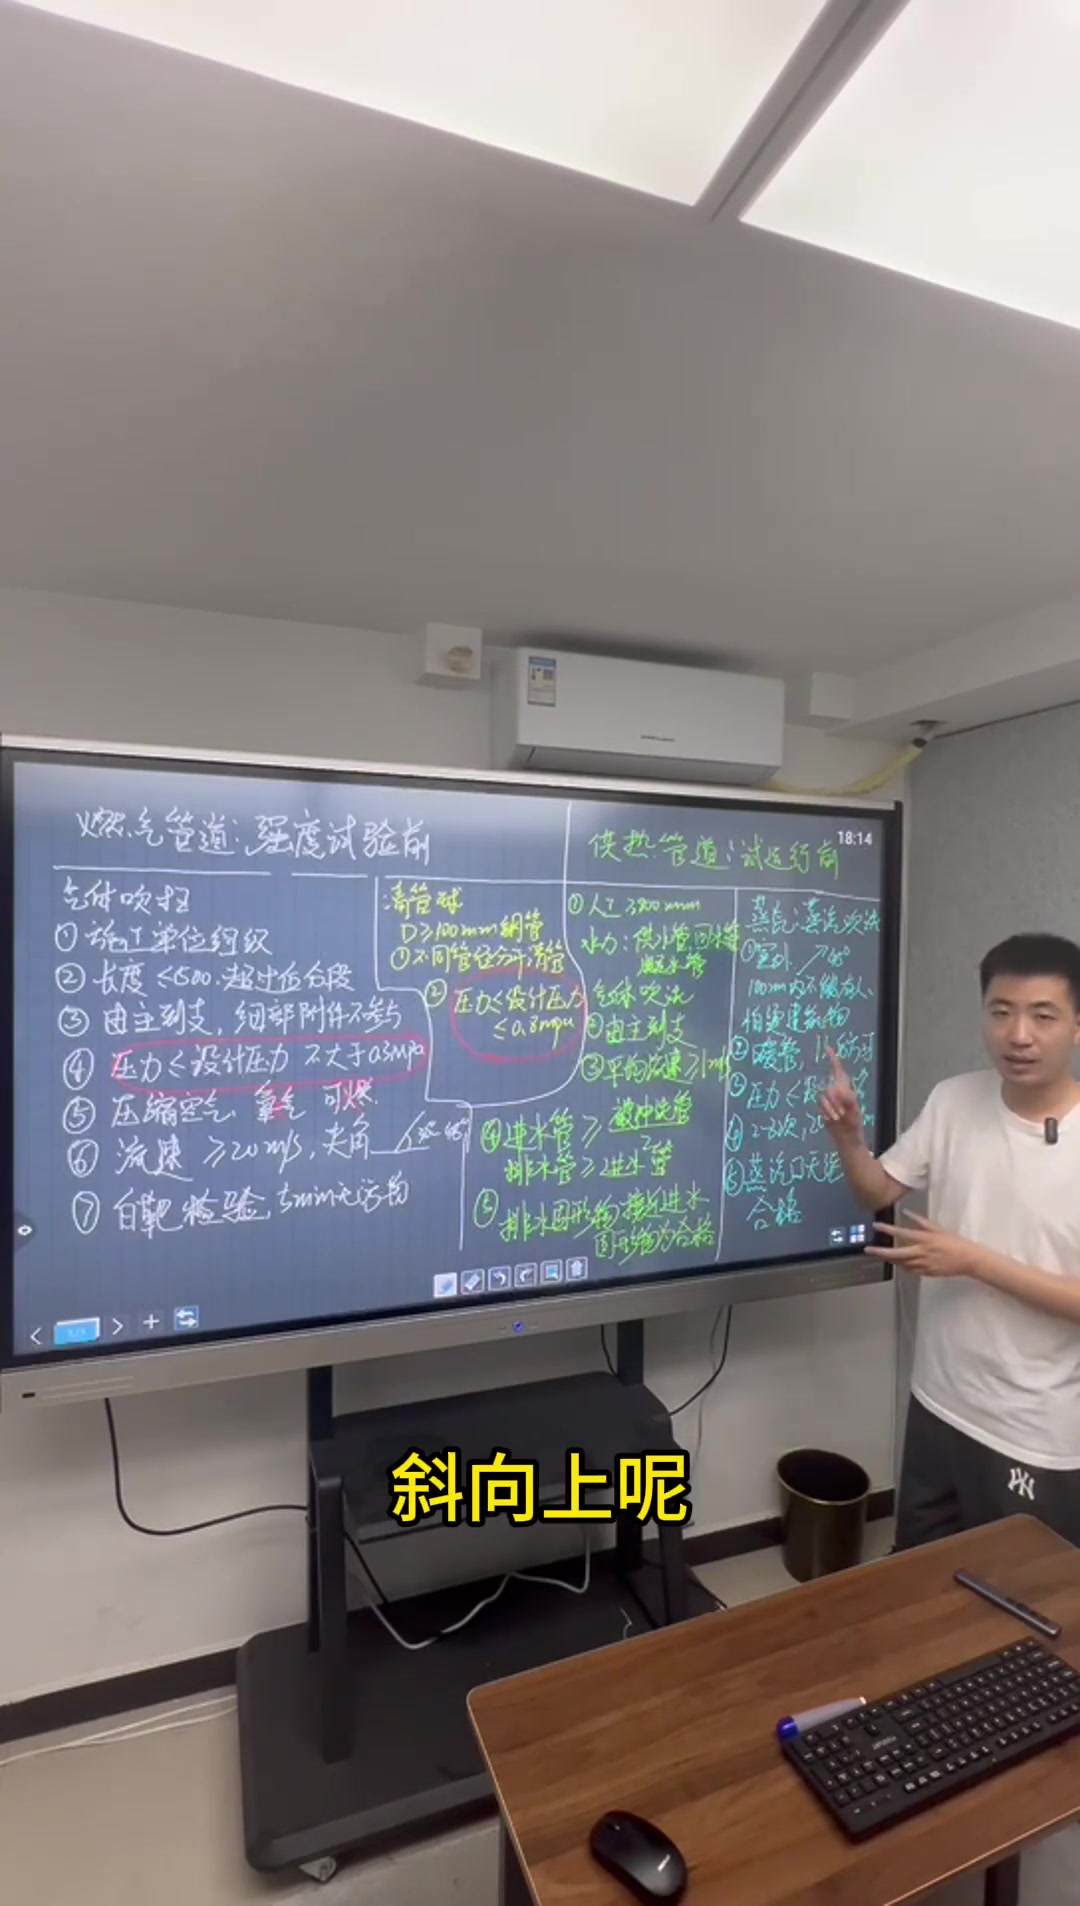 燃气管道:强度试验前
气体吹扫
① 施工单位组织
② 长度≤500.超过位分段
③ 由主到支,细部附件不参与
④ 压力≤设计压力 不大于0.3mpa
⑤ 压缩空气、氧气 可燃.
⑥ 流速 ≥20m/s,夹角
⑦ 白靶检验,5min无污物
清管球
D≥100mm钢管
① 不同管径分开清管
② 压力≤设计压力
≤0.8mpa
供热管道:试运行前
18:14
① 人工≥800mm
水力:供水管回水管
凝水管
气体吹洗
② 由主到支
③ 平均流速≥1m/s
④ 进水管≥被冲洗管
排水管≥进水管
⑤ 排水固形物接近进水
固形物为合格
蒸气:蒸汽吹洗
100m内不能有人、
② 暖管,1h
③ 压力≤
④ 2-3次,20
⑤ 蒸汽口无
合格
斜向上呢